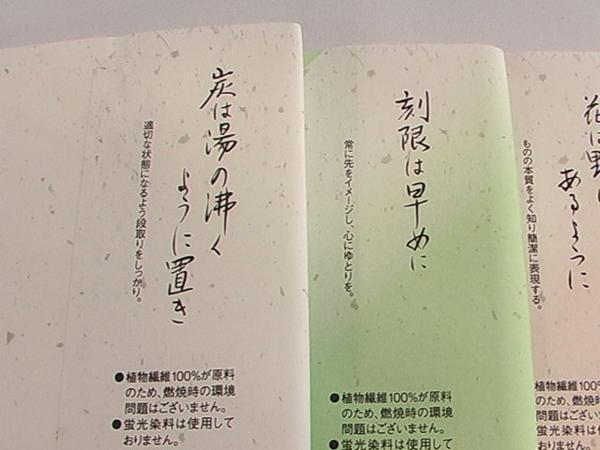 炭は湯の沸く
ように置き
適切な状態になるよう段取りをしっかり。
●植物繊維100%が原料
のため、燃焼時の環境
問題はございません。
●蛍光染料は使用して
おりません。
刻限は早めに
常に先をイメージし、心にゆとりを。
●植物繊維100%が原料
のため、燃焼時の環境
問題はございません。
●蛍光染料は使用して
花は野に
あるように
ものの本質をよく知り簡潔に表現する。
植物繊維100%
のため、燃焼
問題はござい
蛍光染料は
おりません